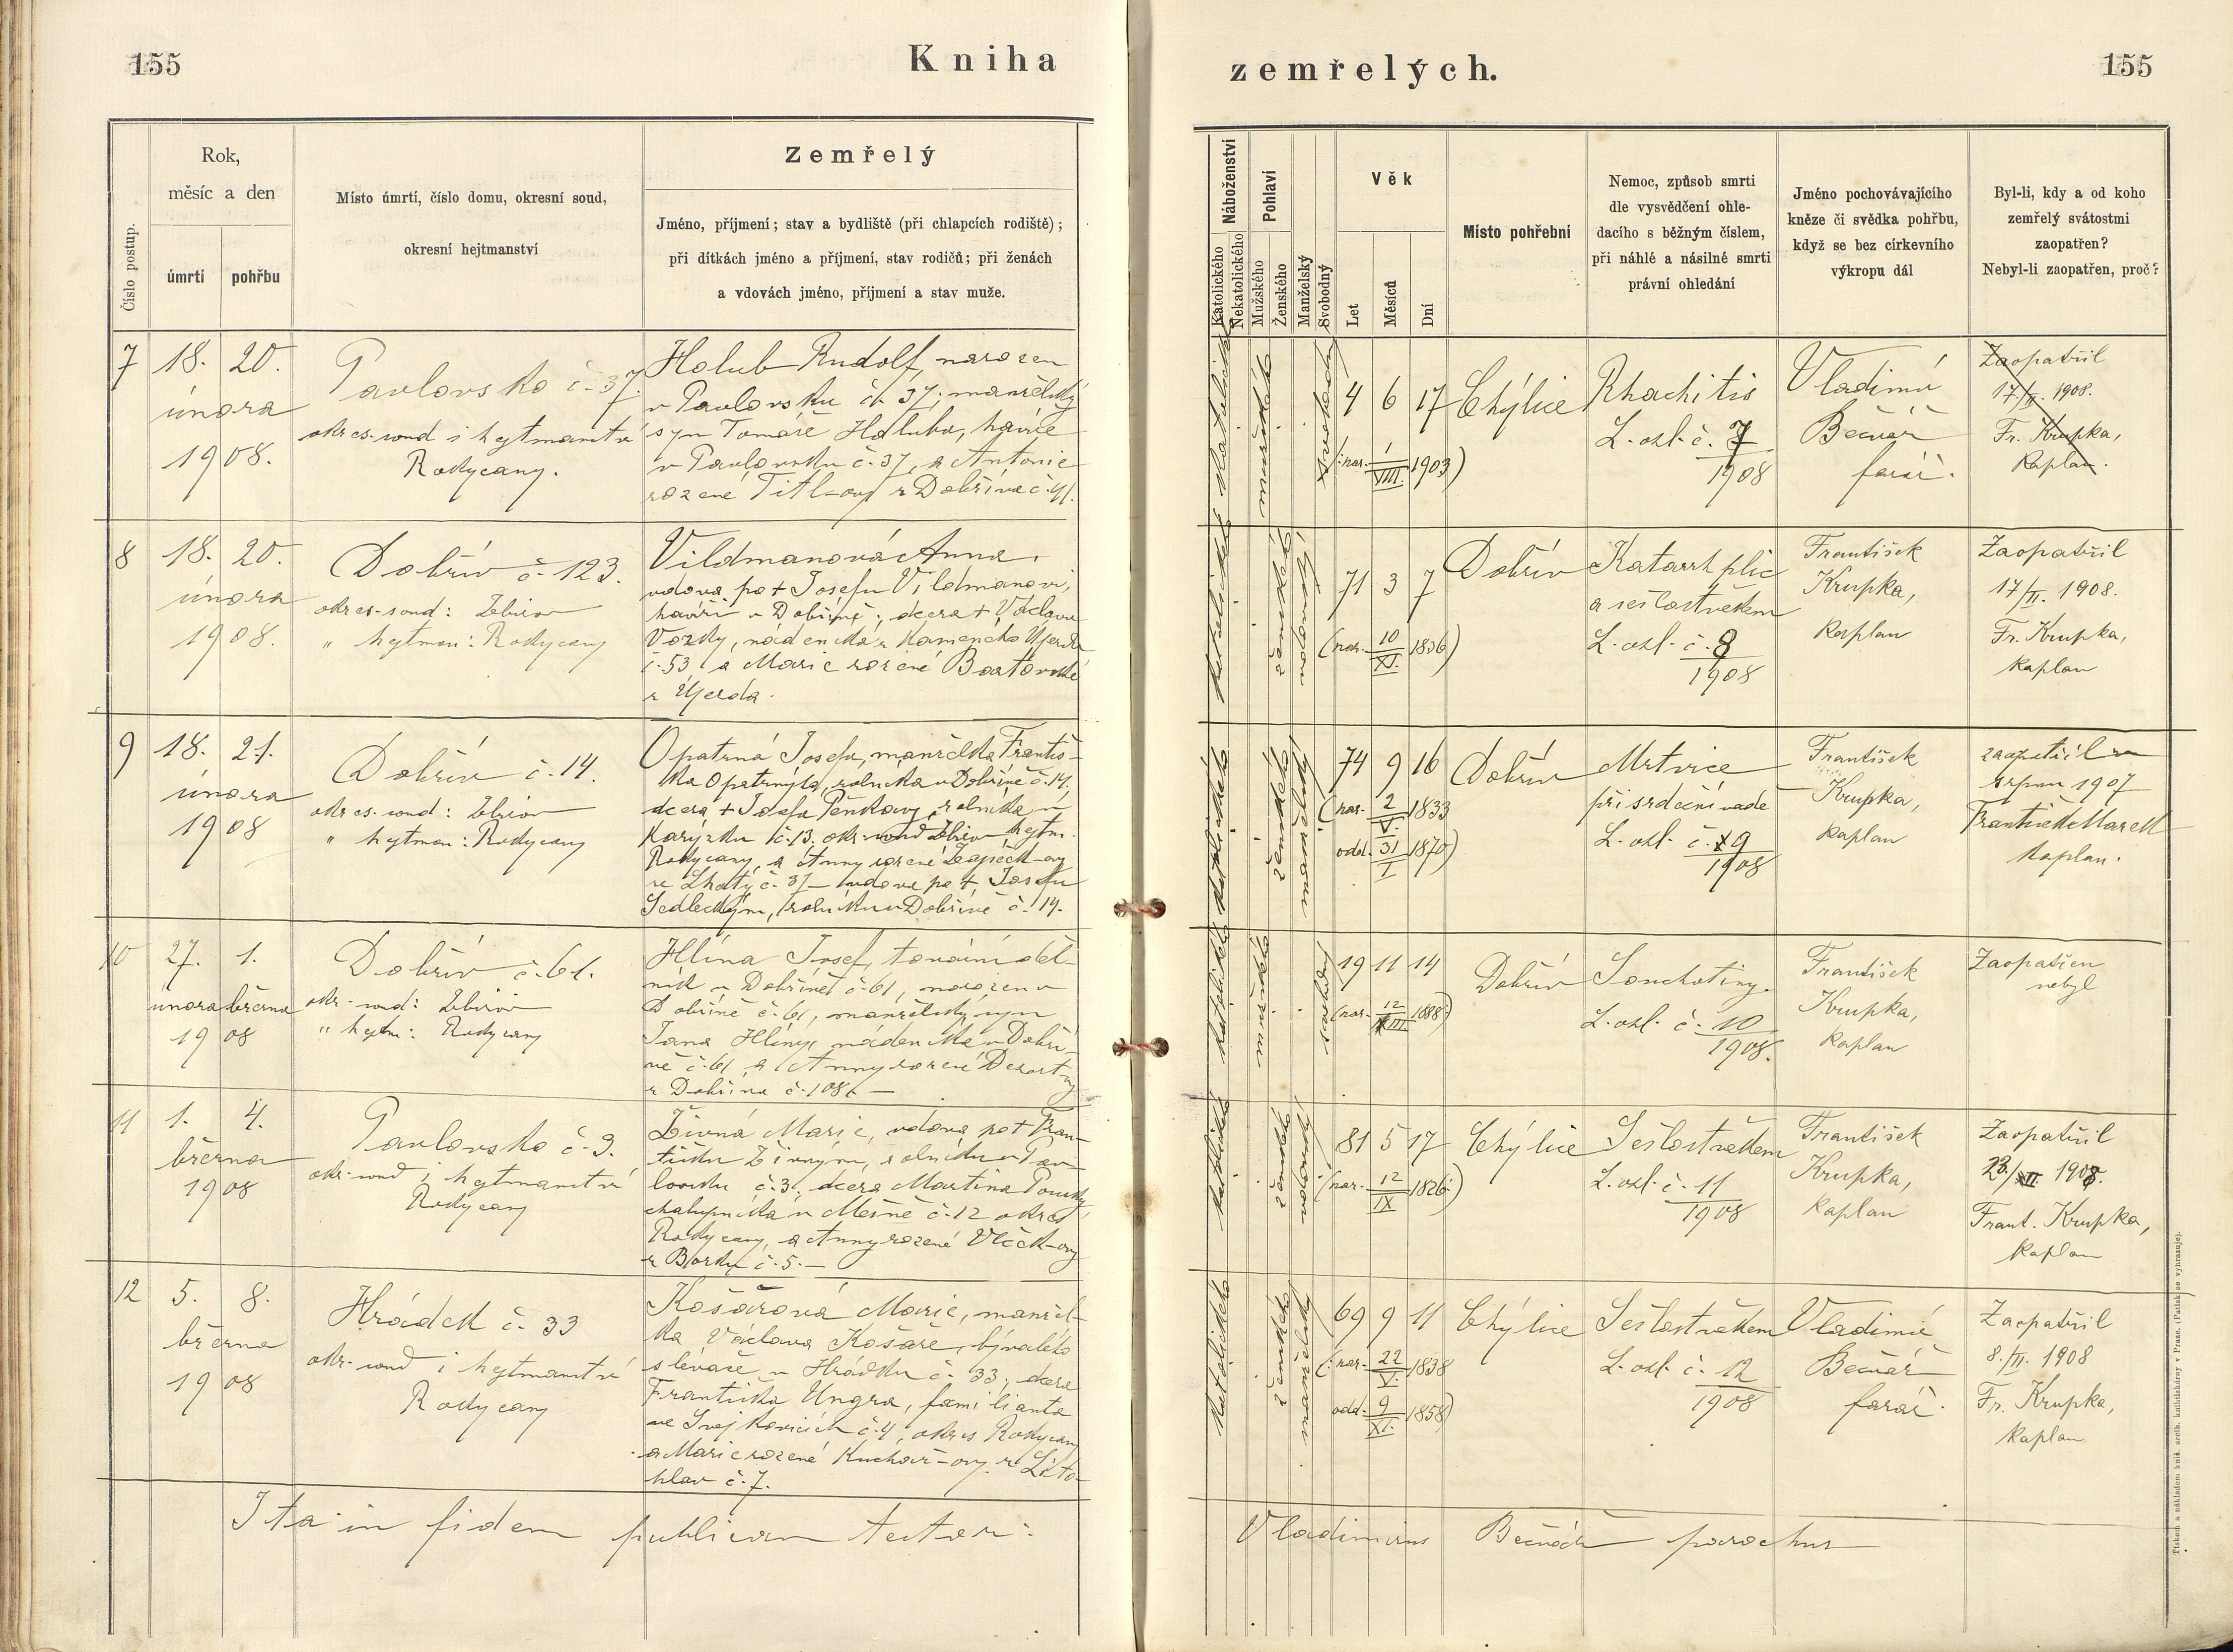 155
Kniha
zemřelých.
155
Číslo postup.
Rok,
měsíc a den
úmrtí
pohřbu
Místo úmrtí, číslo domu, okresní soud,
okresní hejtmanství
Zemřelý
Jméno, příjmení; stav a bydliště (při chlapcích rodiště);
při dítkách jméno a příjmení, stav rodičů; při ženách
a vdovách jméno, příjmení a stav muže.
Náboženství
Katolického
Nekatolického
Pohlaví
Mužského
Ženského
Manželský
Svobodný
Věk
Let
Měsíců
Dní
Místo pohřební
Nemoc, způsob smrti
dle vysvědčení ohle-
dacího s běžným číslem,
při náhlé a násilné smrti
právní ohledání
Jméno pochovávajícího
kněze či svědka pohřbu,
když se bez církevního
výkropu dál
Byl-li, kdy a od koho
zemřelý svátostmi
zaopatřen?
Nebyl-li zaopatřen, proč?
7
18. 20.
února
1908.
Pavlovsko č. 37.
okres. soud i hejtmanství
Rokycany.
Holub Rudolf, narozen
v Pavlovsku č. 37; manželský
syn Tomáše Holuba, havíře
v Pavlovsku č. 37, a Antonie
rozené Titl-ovy z Dobříva č. 41.
katolického
mužského
svobodný
4 6 17
(nar. 1/VIII. 1903)
Chýlice
Rhachitis
L. ohl. č. 7
1908
Vladimír
Bečvář
farář.
Zaopatřil
17/II. 1908.
Fr. Krupka,
kaplan.
8
18. 20.
února
1908.
Dobřív č. 123.
okres. soud: Zbiroh
" hejtman: Rokycany
Vildmanová Anna,
vdova po + Josefu Vildmanovi,
havíři v Dobřívě; dcera + Václava
Vozky, nádeníka z Kameného Újezda
č. 53 a Marie rozené Bartovské
z Újezda.
katolického
ženského
vdovský
71 3 7
(nar. 10/XI. 1836)
Dobřív
Katarrh plic
a sešlost věkem
L. ohl. č. 8
1908
František
Krupka,
kaplan
Zaopatřil
17/II. 1908.
Fr. Krupka,
kaplan
9
18. 21.
února
1908
Dobřív č. 14.
okres. soud: Zbiroh
" hejtman: Rokycany
Opatrná Josefa, manželka Františ-
ka Opatrného, rolníka v Dobřívě č. 14,
dcera + Josefa Pěnkavy, rolníka v
Karýzku č. 13. okr. soud Zbiroh hejtm.
Rokycany, a Anny rozené
ze Lhoty č. 37 – vdova po + Josefu
Sedleckým, rolníku v Dobřívě č. 14.
katolického
ženského
manželský
74 9 16
(nar. 2/V. 1833
odd. 31/I 1870)
Dobřív
Mrtvice
při srdeční vadě
L. ohl. č. 9
1908
František
Krupka,
kaplan
zaopatřil v
srpnu 1907
František Marek
kaplan.
10
27. 1.
února března
1908
Dobřív č. 61.
okr. soud: Zbiroh
" hejtm: Rokycany
Hlína Josef, tovární děl-
ník v Dobřívě č. 61, narozen v
Dobřívě č. 61, manželský syn
Jana Hlíny, nádeníka v Dobří-
vě č. 61, a Anny rozené Dezort-ovy
z Dobříva č. 108. –
katolického
mužského
svobodný
19 11 14
(nar. 12/III 1888)
Dobřív
Souchotiny.
L. ohl. č. 10
1908.
František
Krupka,
kaplan
Zaopatřen
nebyl
11
1. 4.
března
1908
Pavlovsko č. 3.
okr. soud i hejtmanství
Rokycany
Živná Marie, vdova po + Fran-
tišku Živným, rolníku v Pav-
lovsku č. 3; dcera Martina
chalupníka v Mešně č. 12 okres
Rokycany, a Anny rozené Vlčk-ovy
z Borku č. 5. –
katolického
ženského
vdovský
81 5 17
(nar. 12/IX 1826)
Chýlice
Sešlost věkem
L. ohl. č. 11
1908
František
Krupka,
kaplan
Zaopatřil
23/II 1908.
Frant. Krupka,
kaplan
12
5. 8.
března
1908
Hrádek č. 33
okr. soud i hejtmanství
Rokycany
Košařová Marie, manžel-
ka Václava Košaře, bývalého
slévače v Hrádku č. 33; dcera
Františka Ungra, familianta
ve Svojkovicích č. 4, okres Rokycany
a Marie rozené Kuchař-ovy z Lito-
hlav č. 7.
katolického
ženského
manželský
69 9 11
(nar. 22/V. 1838
odd. 9/XI. 1858)
Chýlice
Sešlost věkem
L. ohl. č. 12
1908
Vladimír
Bečvář
farář.
Zaopatřil
8./II. 1908
Fr. Krupka,
kaplan
Ita in fidem publicam testor:
Vladimirus Bečvář parochus